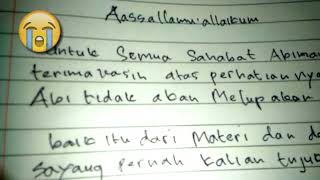 Aassallamu'allaikum
untuk Semua Sahabat Abiman
terimakasih atas perhatiannya
Abi tidak akan Melupakan
baik itu dari Materi dan do
sayang pernah kalian tujuk